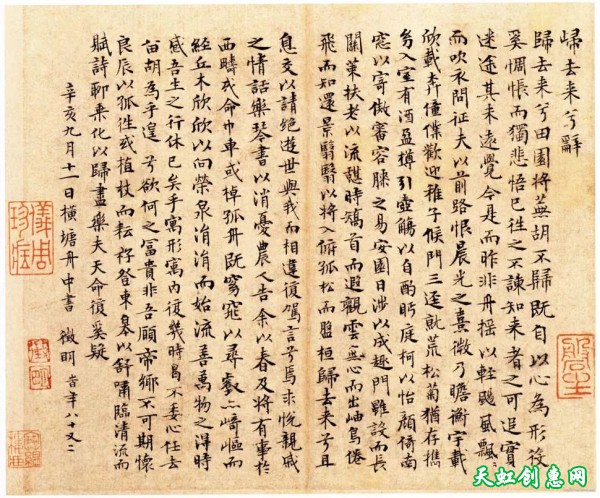 歸去来兮辭
歸去来兮田園将蕪胡不歸既自以心為形役
奚惆悵而獨悲悟已往之不諫知来者之可追實
迷途其未遠覺今是而昨非舟摇以輕颺風飄〻
而吹衣問征夫以前路恨晨光之熹微乃瞻衡宇載
欣載奔僮僕歡迎稚子候門三迳就荒松菊猶存攜
幼入室有酒盈樽引壺觴以自酌眄庭柯以怡顔倚南
窓以寄傲審容膝之易安園日涉以成趣門雖設而長
關策扶老以流憩時矯首而遐觀雲無心而出岫鳥倦
飛而知還景翳翳以将入撫孤松而盤桓歸去来兮且
息交以請絶遊世與我而相違復駕言兮焉求悦親戚
之情話樂琴書以消憂農人告余以春及将有事於
西疇或命巾車或棹孤舟既窈窕以尋壑亦崎嶇而
經丘木欣欣以向榮泉涓涓而始流善萬物之得時
感吾生之行休已矣乎寓形寓内復幾時曷不委心任去
留胡為乎遑〻兮欲何之富貴非吾願帝鄉不可期懷
良辰以孤往或植杖而耘耔登東皋以舒嘯臨清流而
賦詩聊乘化以歸盡樂夫天命復奚疑
辛亥九月十一日横塘舟中書 徵明 時年八十又二
儀周珍藏
徵明
天虹创惠网